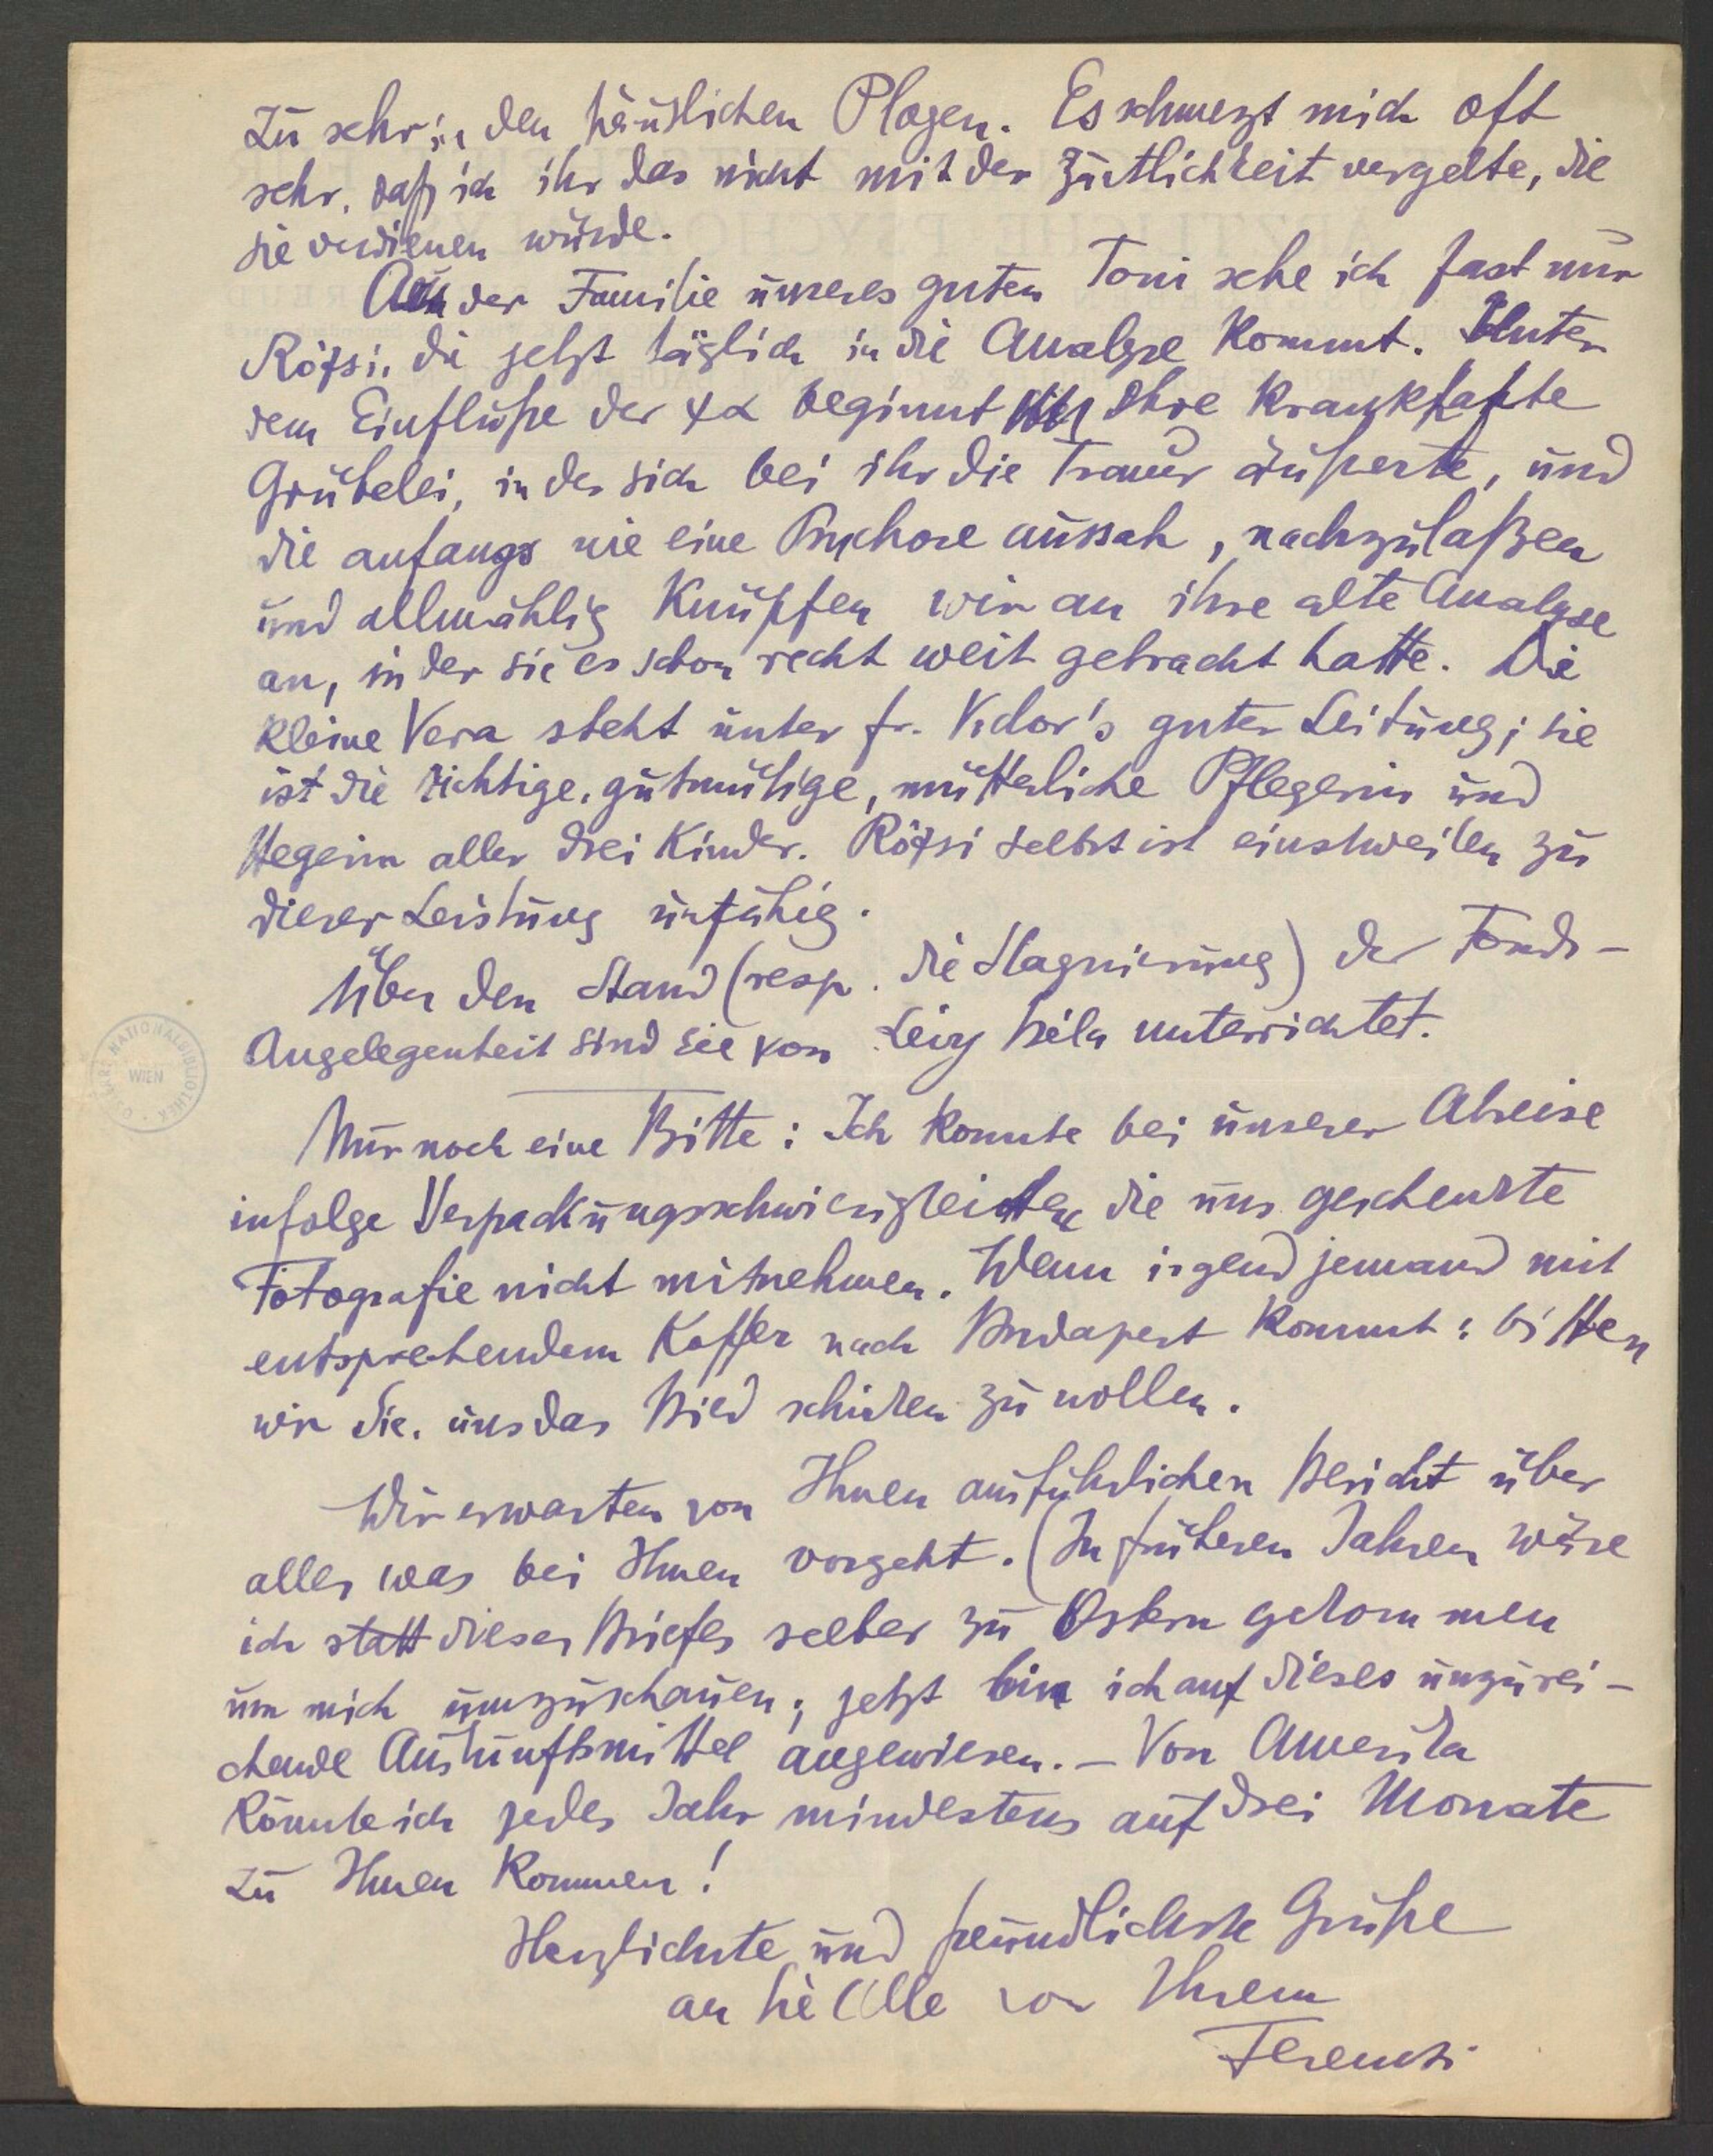 zu sehr in den häuslichen Plagen. Es schmerzt mich oft
sehr, daß ich ihr das nicht mit der Zärtlichkeit vergelte, die
sie verdienen würde.
Aus der Familie unseres guten Toni sehe ich fast nur
Rózsi, die jetzt täglich in die Analyse kommt. Unter
dem Einfluße der ψα beginnt ihre krankhafte
Grübelei, in der sich bei ihr die Trauer äußerte, und
die anfangs wie eine Psychose aussah, nachzulaßen
und allmählig knüpfen wir an ihre alte Analyse
an, in der sie es schon recht weit gebracht hatte. Die
kleine Vera steht unter fr. Vidor's guter Leitung; sie
ist die richtige, gutmütige, mütterliche Pflegerin und
Hegerin aller drei Kinder. Rózsi selbst ist einstweilen zu
dieser Leistung unfähig.
Über den Stand (resp. die Stagnierung) der Fonds-
Angelegenheit sind Sie von Levy Béla unterrichtet.
Nur noch eine Bitte: Ich konnte bei unserer Abreise
infolge Verpackungsschwierigkeiten die uns geschenkte
Fotografie nicht mitnehmen. Wenn irgend jemand mit
entsprechendem Koffer nach Budapest kommt: bitten
wir Sie, uns das Bild schicken zu wollen.
Wir erwarten von Ihnen ausführlichen Bericht über
alles was bei Ihnen vorgeht. (In früheren Jahren wäre
ich statt dieses Briefes selber zu Ostern gekommen
um mich umzuschauen; jetzt bin ich auf dieses unzurei-
chende Auskunftsmittel angewiesen. – Von Amerika
könnte ich jedes Jahr mindestens auf drei Monate
zu Ihnen kommen!
Herzlichste und freundlichste Grüße
an Sie Alle von Ihrem
Ferenczi
ÖSTERR. NATIONALBIBLIOTHEK
WIEN